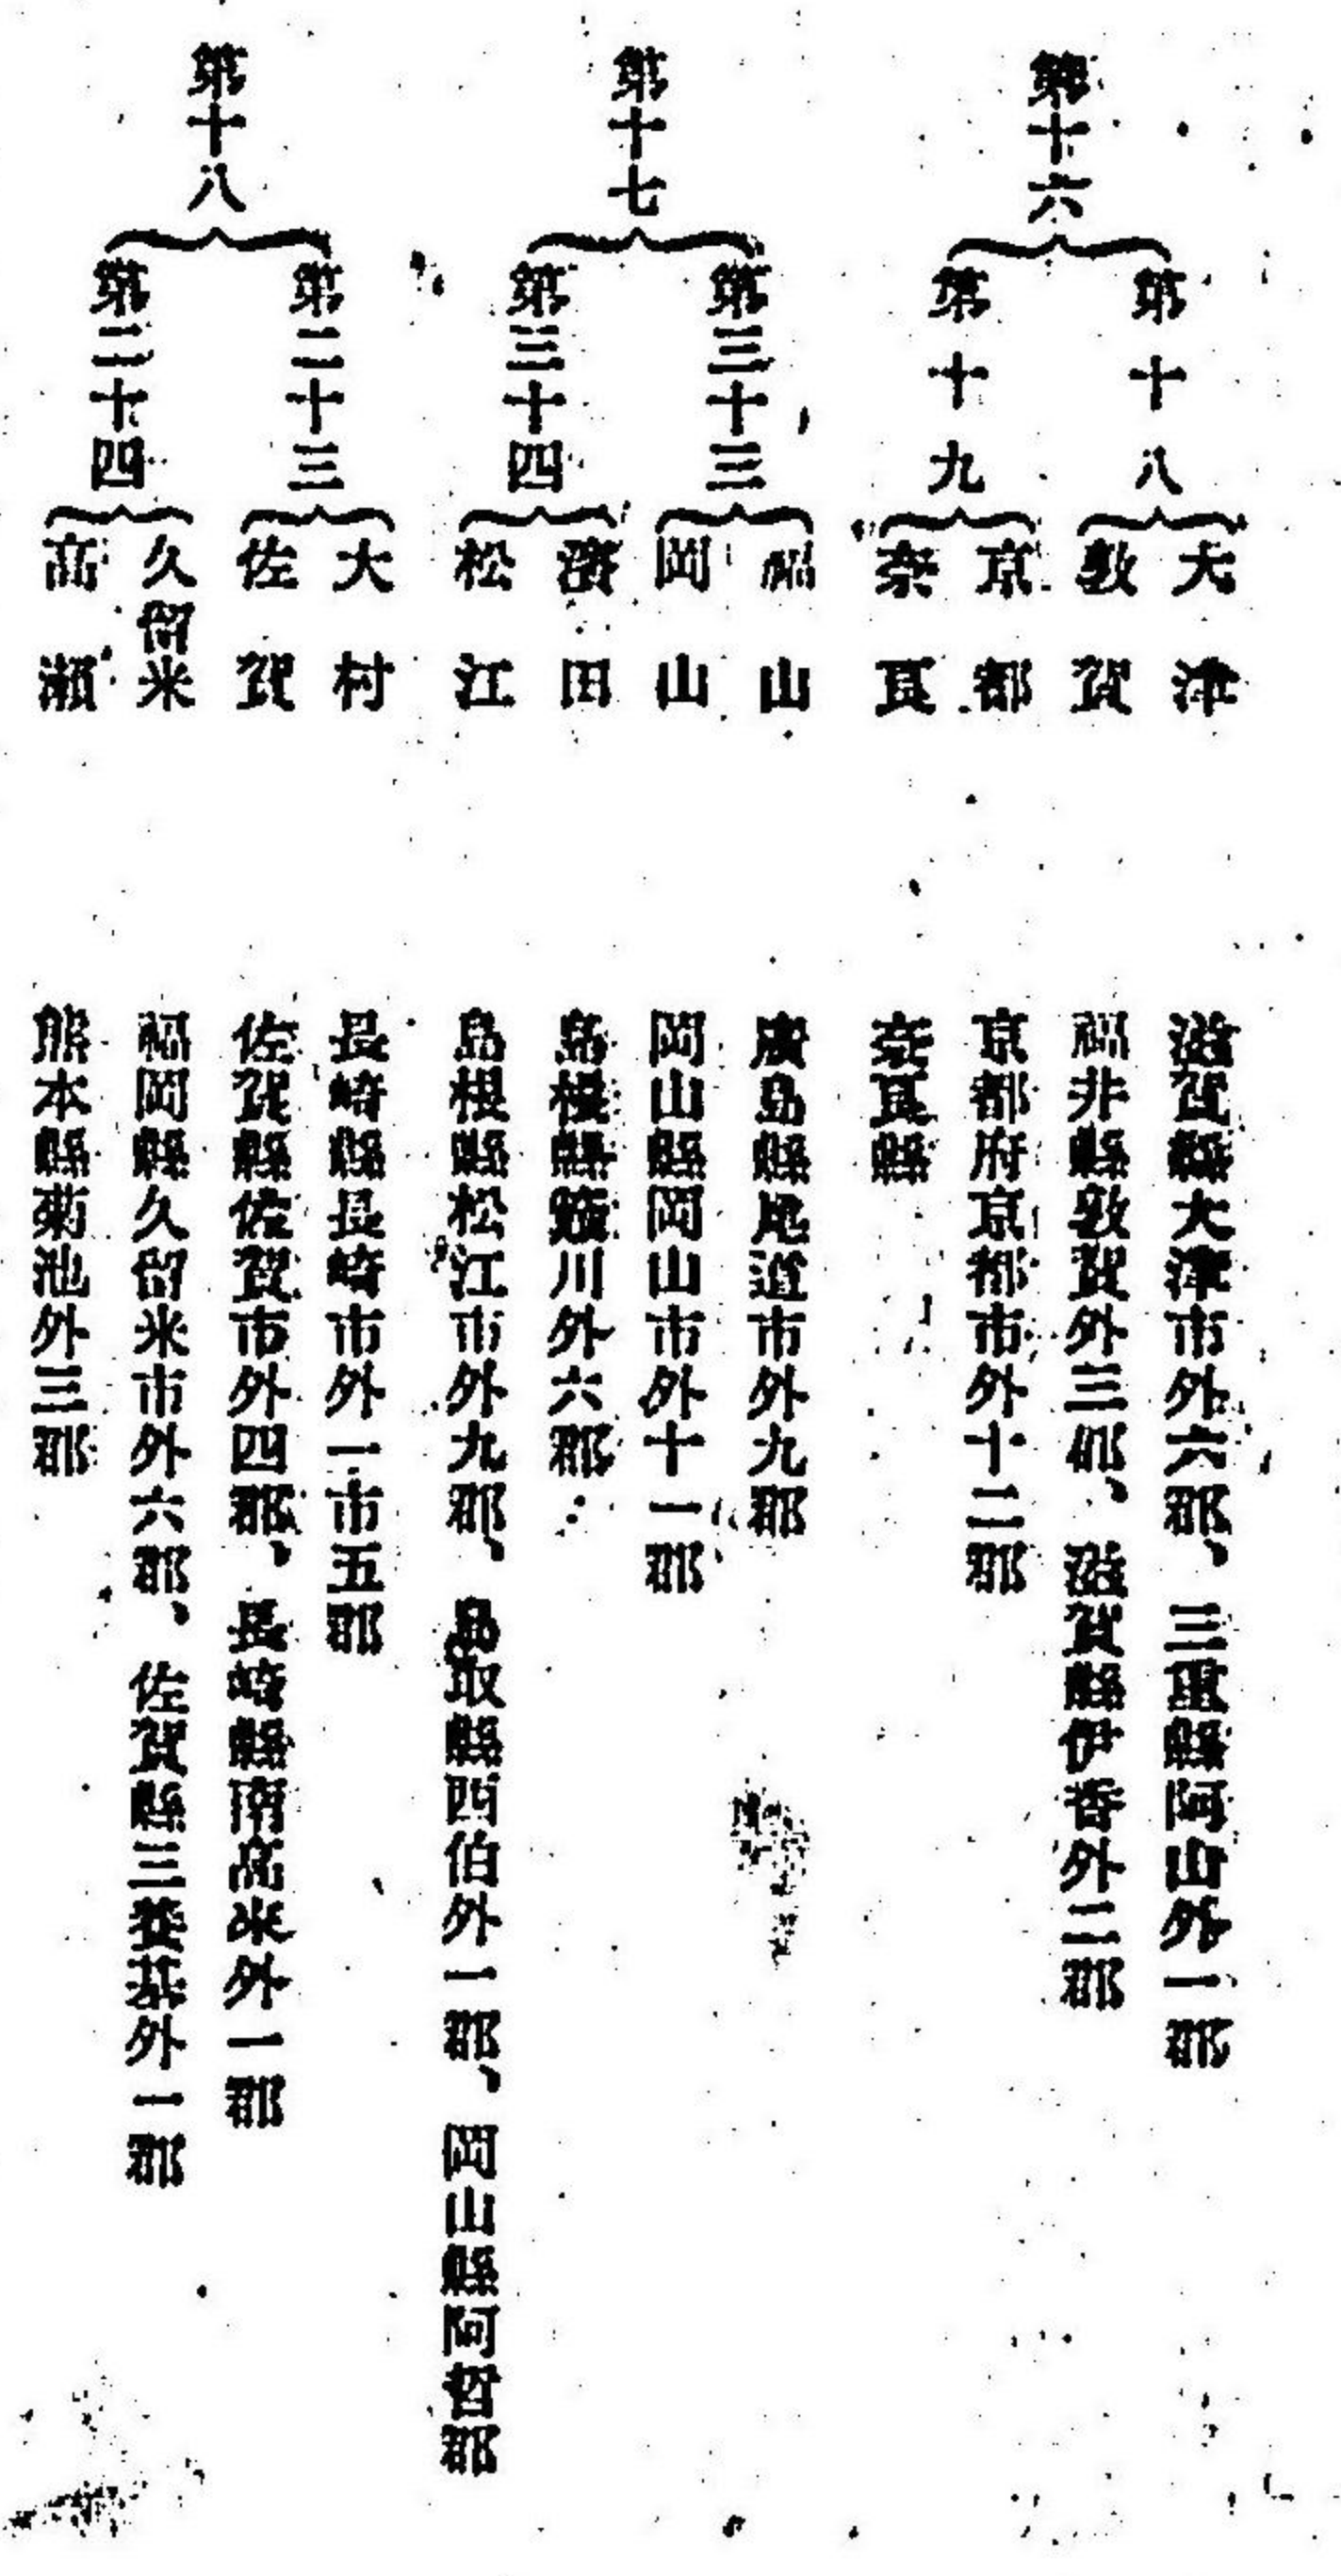 第十六
第十八
大津
滋賀縣大津市外六郡、三重縣阿山外一郡
敦賀
福井縣敦賀外三郡、滋賀縣伊香外二郡
第十九
京都
京都府京都市外十二郡
奈良
奈良縣
第十七
第三十三
福山
廣島縣尾道市外九郡
岡山
岡山縣岡山市外十一郡
第三十四
濱田
島根縣簸川外六郡
松江
島根縣松江市外九郡、鳥取縣西伯外一郡、岡山縣阿哲郡
第十八
第二十三
大村
長崎縣長崎市外一市五郡
佐賀
佐賀縣佐賀市外四郡、長崎縣南高來外一郡
第二十四
久留米
福岡縣久留米市外六郡、佐賀縣三養基外一郡
高瀬
熊本縣菊池外三郡